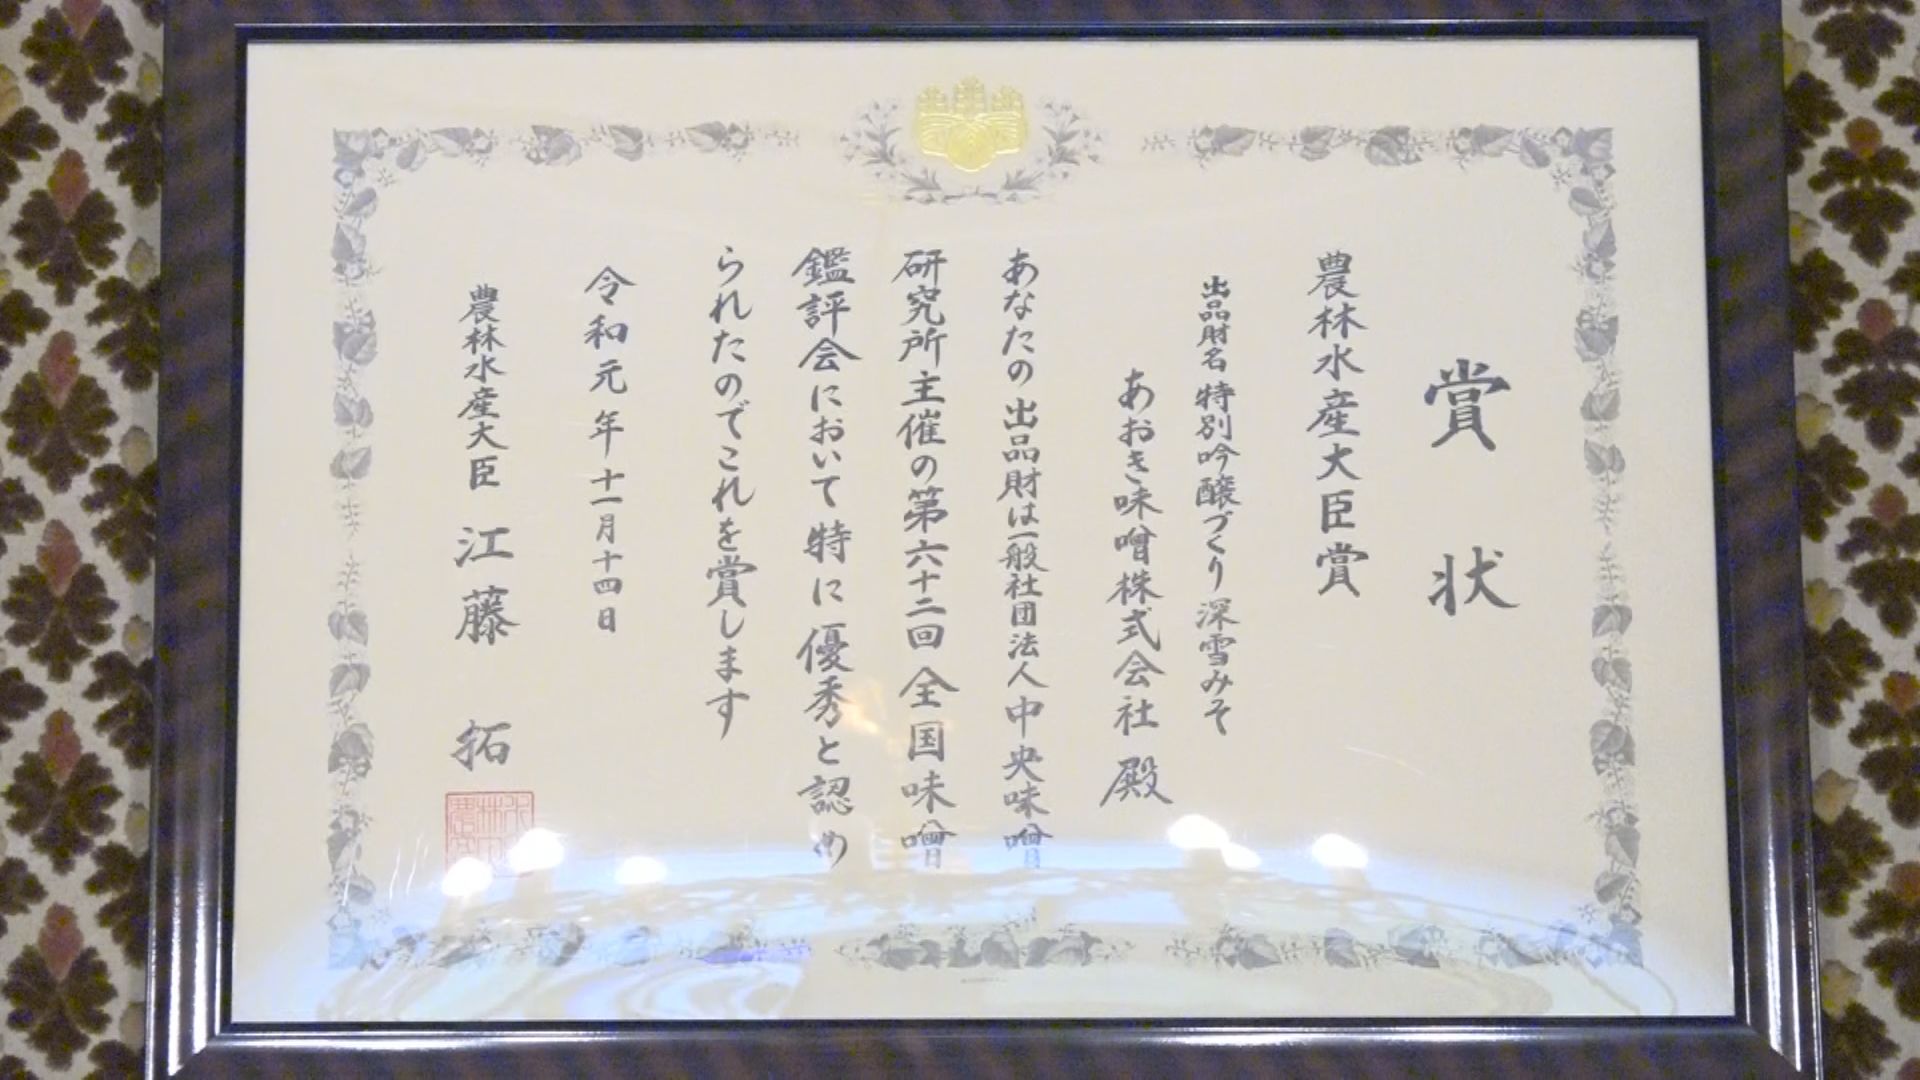 賞状
農林水産大臣賞
出品財名 特別吟醸づくり深雪みそ
あおき味噌株式会社 殿
あなたの出品財は一般社団法人中央味噌
研究所主催の第六十二回全国味噌
鑑評会において特に優秀と認め
られたのでこれを賞します
令和元年十一月十四日
農林水産大臣 江藤 拓